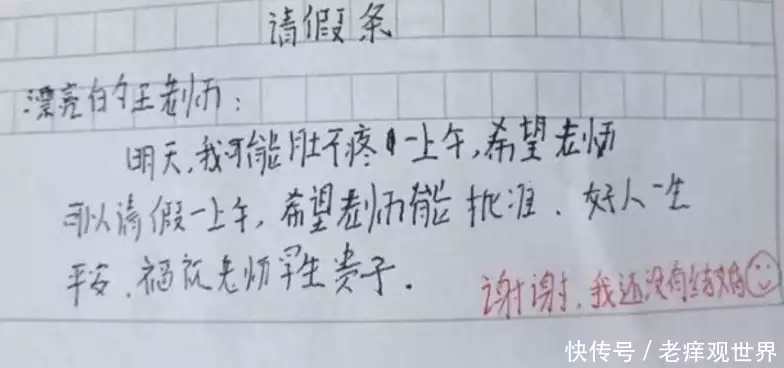 请假条
漂亮的王老师：
明天,我可能肚子疼一上午,希望老师
可以请假一上午,希望老师能批准.好人一生
平安.祝福老师早生贵子.
谢谢,我还没有结婚
快传号/老痒观世界